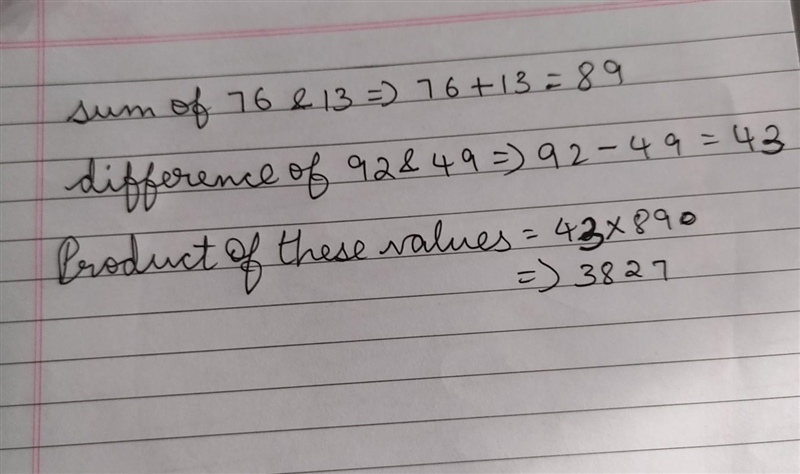 sum of 76 & 13 => 76 + 13 = 89
difference of 92 & 49 => 92 - 49 = 43
Product of these values = 43 x 890
=> 3827